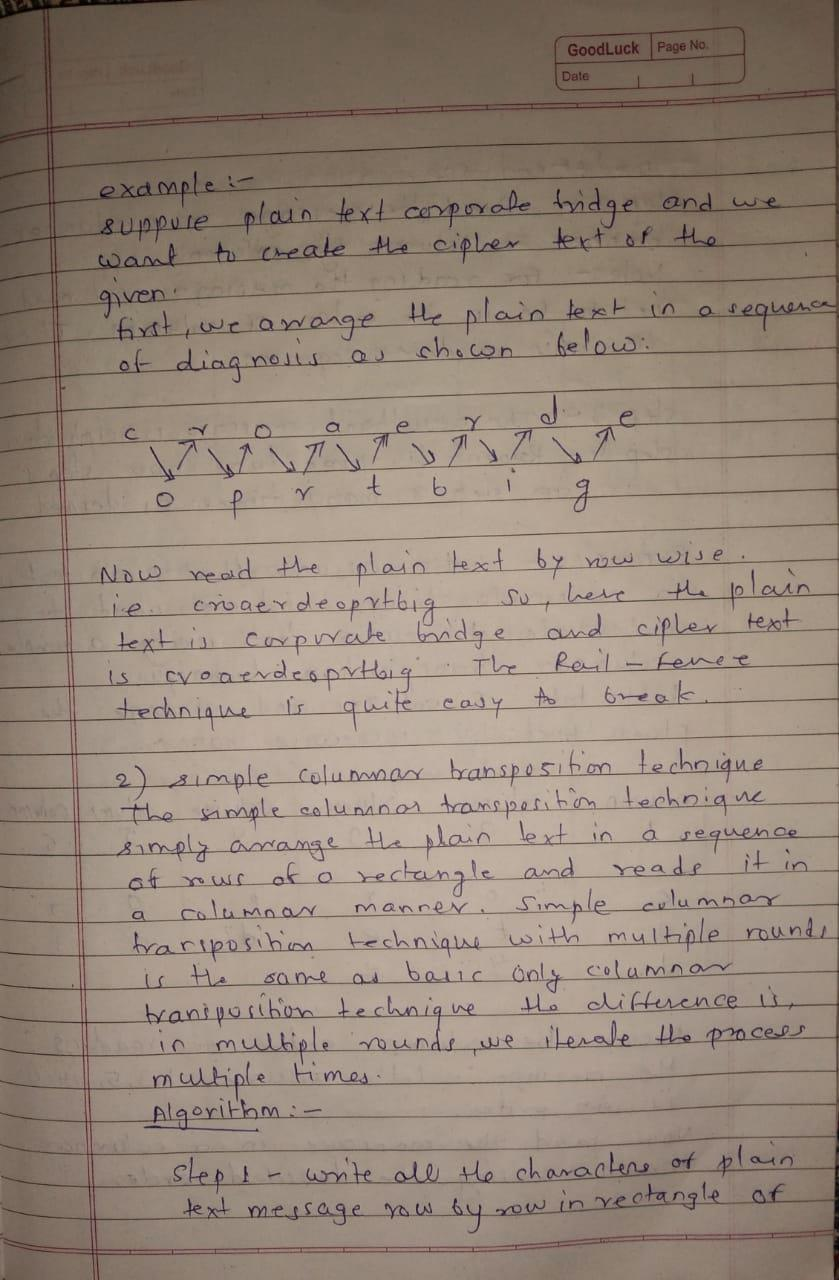 GoodLuck Page No.
Date
example :-
suppose plain text corporate bridge and we
want to create the cipher text of the
given.
first, we arrange the plain text in a sequence
of diagnosis as shocon below:
c r o a e r d e
o p r t b i g
Now read the plain text by row wise.
i.e. croaerdeoprtbig so, here the plain
text is corporate bridge and cipher text
is croaerdeoprtbig. The Rail-fence
technique is quite easy to break.
2) simple columnar transposition technique
the simple columnar transposition technique
simply arrange the plain text in a sequence
of rows of a rectangle and reads it in
a columnar manner. Simple columnar
transposition technique with multiple rounds
is the same as basic only columnar
transposition technique the difference is,
in multiple rounds, we iterate the process
multiple times.
Algorithm :-
step 1 - write all the characters of plain
text message row by row in rectangle of